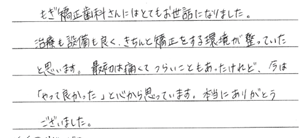 もぎ矯正歯科さんにはとてもお世話になりました。
治療も設備も良く、きちんと矯正をする環境が整っていた
と思います。最初は痛くてつらいこともあったけれど、今は
「やって良かった」と心から思っています。本当にありがとう
ございました。